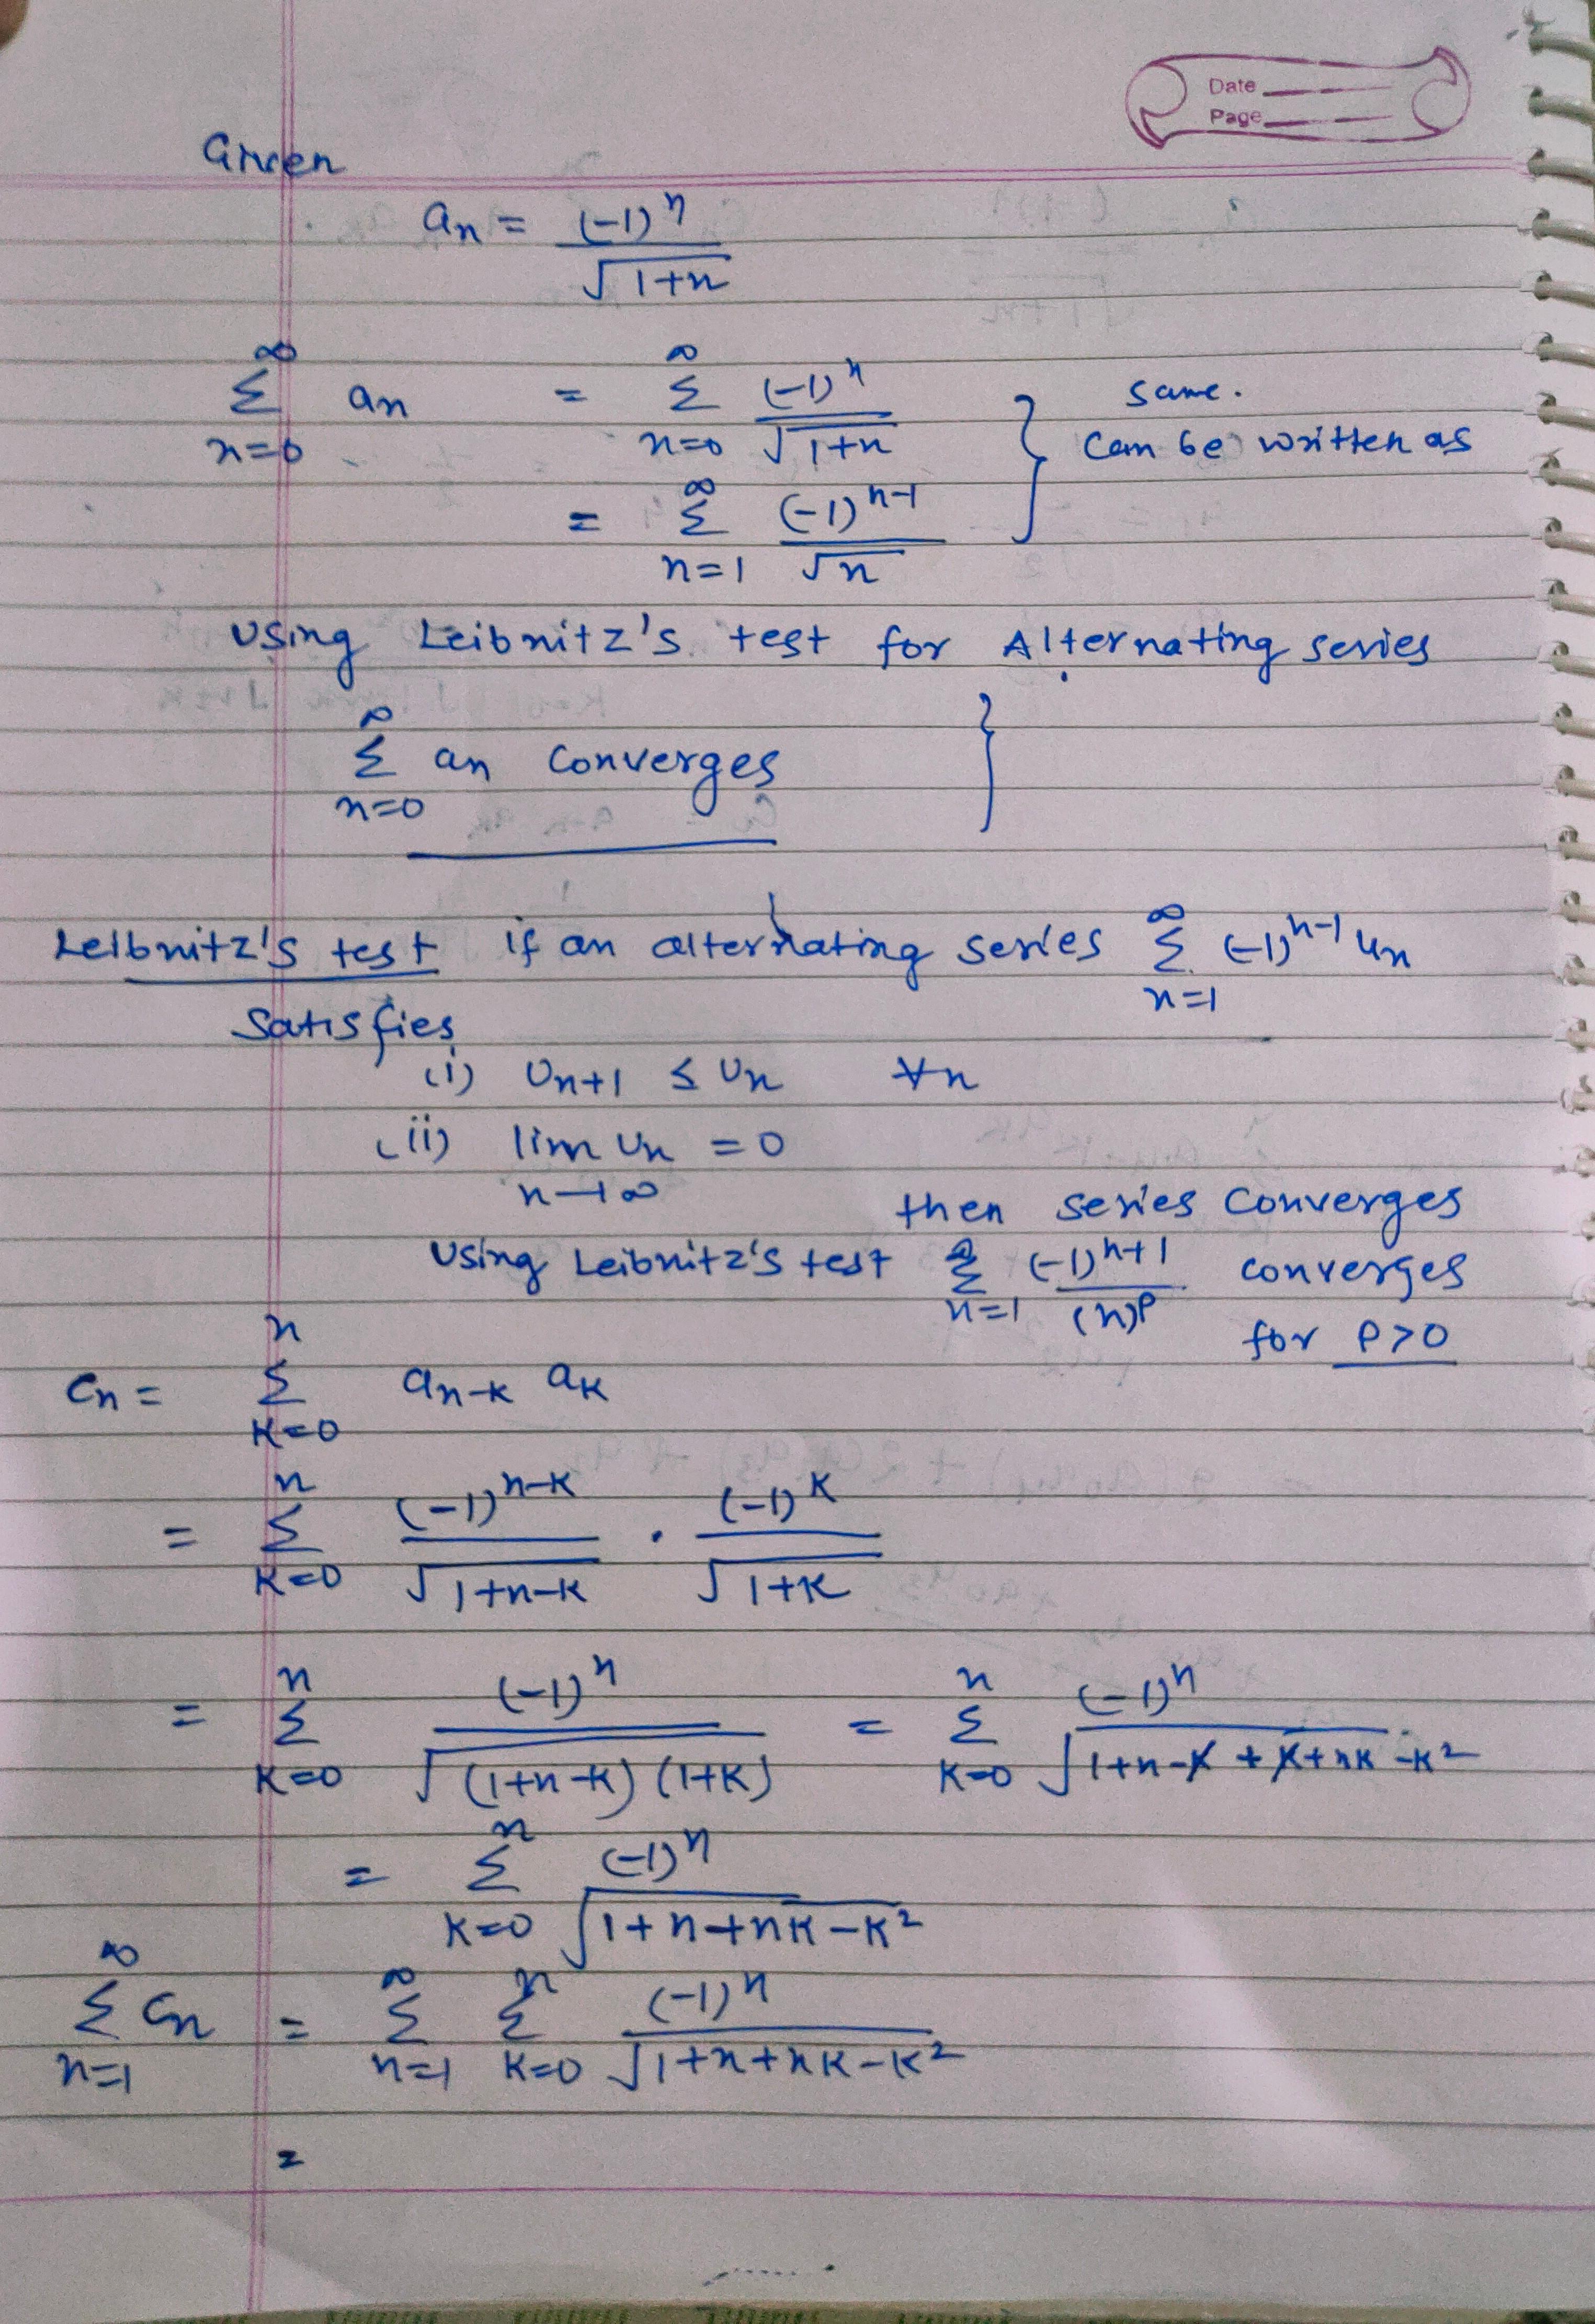 Date
Page
Given
an = (-1)^n / √(1+n)
∞Σn=0 an = ∞Σn=0 (-1)^n / √(1+n) } same.
can be written as
= ∞Σn=1 (-1)^(n-1) / √n
Using Leibnitz's test for Alternating series
∞Σn=0 an converges }
Leibnitz's test if an alternating series ∞Σn=1 (-1)^(n-1) un
Satisfies
(i) Un+1 ≤ Un ∀n
(ii) lim n→∞ Un = 0
then series converges
Using Leibnitz's test ∞Σn=1 (-1)^(n+1) / (n)^p converges
for P>0
Cn = nΣK=0 an-K aK
= nΣK=0 (-1)^(n-K) / √(1+n-K) · (-1)^K / √(1+K)
= nΣK=0 (-1)^n / √((1+n-K)(1+K)) = nΣK=0 (-1)^n / √(1+n-K+K+nK-K²)
= nΣK=0 (-1)^n / √(1+n+nK-K²)
∞Σn=1 Cn = ∞Σn=1 nΣK=0 (-1)^n / √(1+n+nK-K²)
=